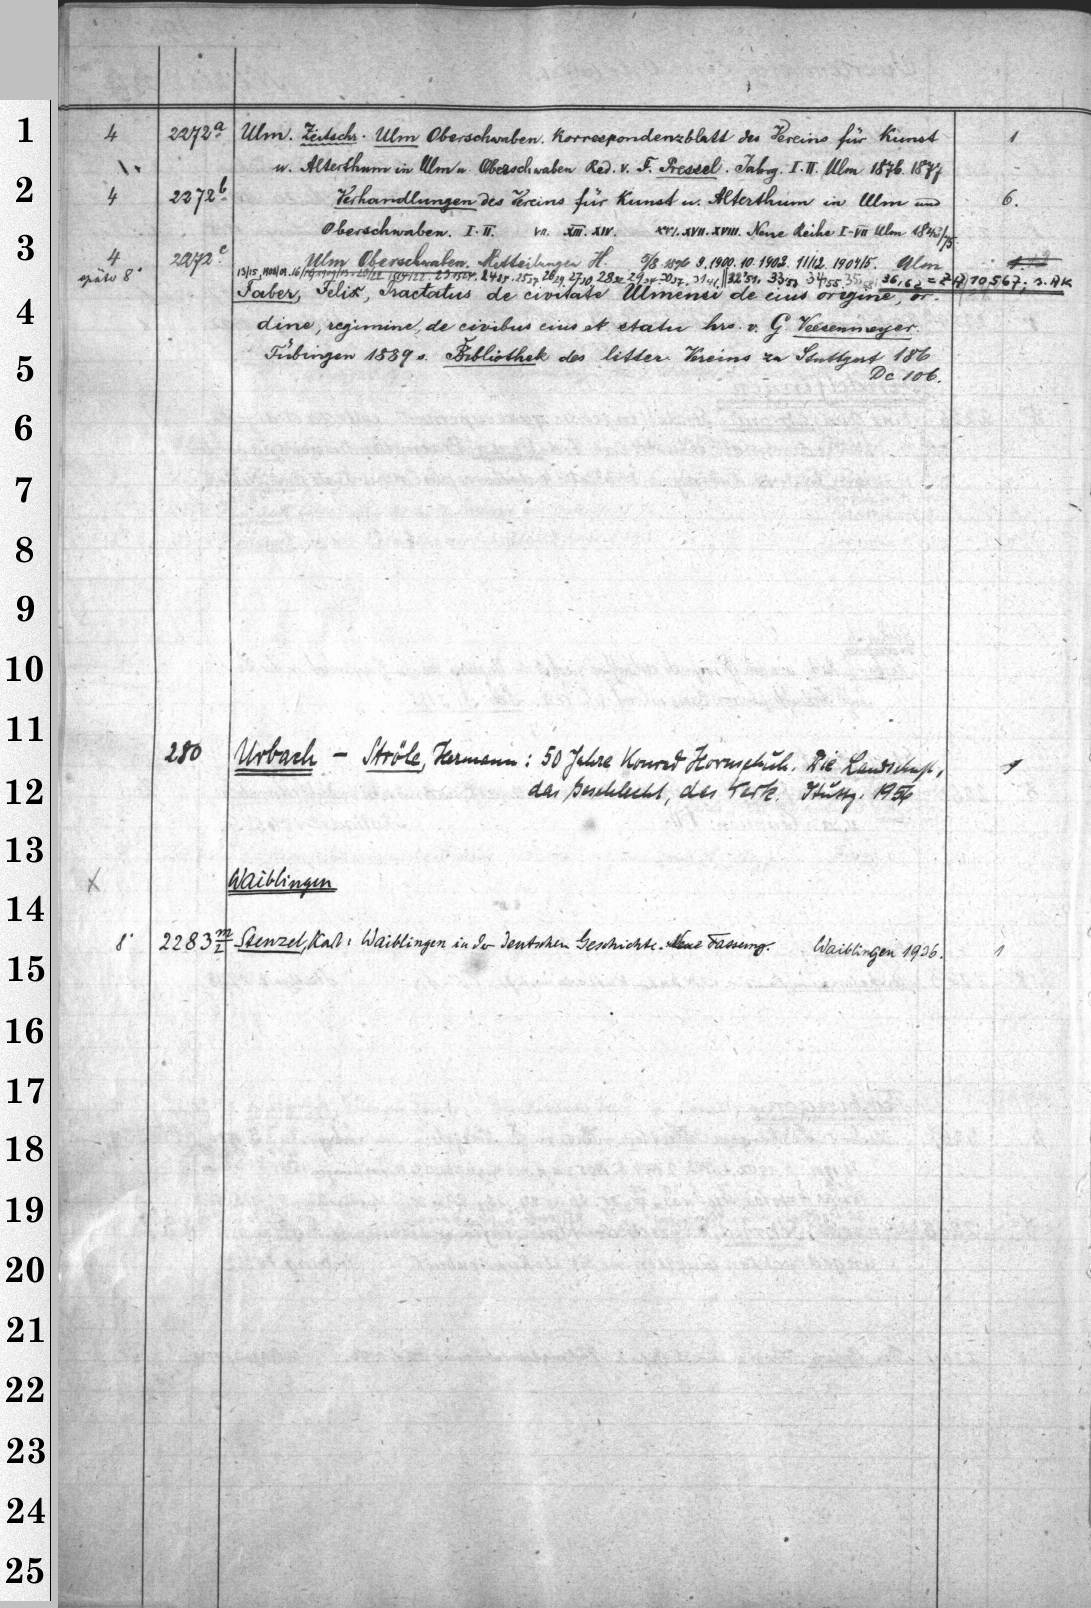 1
2
3
4
5
6
7
8
9
10
11
12
13
14
15
16
17
18
19
20
21
22
23
24
25
4 2272a Ulm. Zeitschr. Ulm Oberschwaben. Korrespondenzblatt des Vereins für Kunst 1
u. Alterthum in Ulm u. Oberschwaben Red. v. F. Pressel. Jahrg. I. II. Ulm 1876. 1877
4 2272b Verhandlungen des Vereins für Kunst u. Alterthum in Ulm und 6.
Oberschwaben. I. II. VII. XIII. XIV. XVI. XVII. XVIII. Neue Reihe I-VII Ulm 1843/75
4 2272c Ulm Oberschwaben. Mitteilungen H. 9. 1900. 10. 1902. 11/12. 1904/5. Ulm
später 8° 36,62 = Z A 10567; n. AK
Faber, Felix, Tractatus de civitate Ulmensi de eius origine, or-
dine, regimine, de civibus eius et statu hrs. v. G. Veesenmeyer.
Tübingen 1889 s. Bibliothek des litter. Vereins zu Stuttgart 186
Dc 106.
280 Urbach – Ströle, Hermann: 50 Jahre Konrad Hornschuh. Die Landschaft, 1
das Geschlecht, das Werk. Stuttg. 1956
Waiblingen
8° 2283 m/2 Stenzel, Karl: Waiblingen in der Deutschen Geschichte. Neue Fassung. Waiblingen 1936. 1